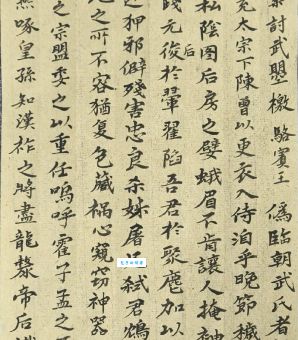 討武曌檄駱賓王 偽臨朝武氏者
充太宗下陳曾以更衣入侍洎乎晚節穢
私陰圖后房之嬖蛾眉不肯讓人掩袖
后
踐元後於翬翟陷吾君於聚麀加以
狎邪僻殘害忠良杀姊屠兄弒君鴆
之所不容猶复包藏禍心窺竊神器
之宗盟委之以重任嗚呼霍子孟之不
燕啄皇孫知漢祚之將盡龍漦帝后